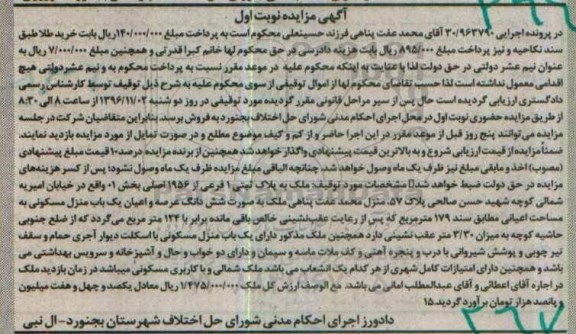 آگهی مزایده نوبت اول
در پرونده اجرایی ۳۰/۹۶۳۷۹۰ آقای محمد عفت پناهی فرزند حسینعلی محکوم است به پرداخت مبلغ ۱۴۰/۰۰۰/۰۰۰ریال بابت خرید طلا طبق
سند نکاحیه و نیز پرداخت مبلغ ۸۹۵/۰۰۰ ریال بابت هزینه دادرسی در حق محکوم لها خانم کبرا قدرتی و همچنین مبلغ ۷/۰۰۰/۰۰۰ ریال به
عنوان نیم عشر دولتی در حق دولت لذا با عنایت به اینکه محکوم علیه در موعد مقرر نسبت به پرداخت محکوم به و نیم عشر دولتی هیچ
اقدامی معمول نداشته است لذا حسب تقاضای محکوم لها از اموال توقیفی از سوی محکوم علیه به شرح ذیل توقیف توسط کارشناس رسمی
دادگستری ارزیابی گردیده است حال پس از سیر مراحل قانونی مقرر گردیده مورد توقیفی در روز دو شنبه ۱۳۹۶/۱۱/۰۲ از ساعت ۸ الی ۸:۳۰
از طریق مزایده حضوری نوبت اول در محل اجرای احکام مدنی شورای حل اختلاف بجنورد به فروش برسد. بنابراین متقاضیان شرکت در جلسه
مزایده می توانند پنج روز قبل از موعد مقرر در این اجرا حاضر و از کم و کیف موضوع مطلع و در صورت تمایل از مورد مزایده بازدید نمایند.
ضمناً مزایده از قیمت ارزیابی شروع و به بالاترین قیمت پیشنهادی واگذار خواهد شد همچنین از برنده مزایده ده درصد۱۰ قیمت مبلغ پیشنهادی
(مصوب) اخذ و مابقی مبلغ نیز ظرف یک ماه وصول خواهد شد. چنانچه الباقی مبلغ مزایده ظرف یک ماه وصول نشود؛ پس از کسر هزینه های
مزایده در حق دولت ضبط خواهد شد. مشخصات مورد توقیف: ملک به پلاک ثبتی ۱ فرعی از ۱۹۵۶ اصلی بخش ۰۱ واقع در خیابان امیریه
شمالی کوچه شهید حسن صالحی پلاک ۵۷، منزل محمد عفت پناهی ملک به صورت شش دانگ عرصه و اعیان یک باب منزل مسکونی به
مساحت اعیانی مطابق سند ۱۷۹ مترمربع که پس از رعایت عقب نشینی خالص باقی مانده برابر با ۱۲۴ متر مربع می گردد که از ضلع جنوبی
حاشیه کوچه به میزان ۳/۳۰ متر عقب نشینی دارد همچنین ملک مذکور دارای یک باب منزل مسکونی با اسکلت دیوار آجری حمام و سقف
تیر چوبی و پوشش شیروانی با درب و پنجره آهنی و کف ملات ماسه و سیمان و دارای دو خواب و حال و آشپزخانه و سرویس بهداشتی می
باشد و همچنین دارای امتیازات کامل شهری از هر کدام یک انشعاب می باشد ملک شمالی و با کاربری مسکونی میباشد در زمان بازدید ملک
در اجاره آقای اعطائی و آقای عبدالمطلب امانی می باشد. مع الوصف ارزش کل ملک ۱/۴۷۵/۰۰۰/۰۰۰ ریال معادل یکصد و چهل و هفت میلیون
و پانصد هزار تومان برآورد گردید. ۱۵
دادورز اجرای احکام مدنی شورای حل اختلاف شهرستان بجنورد-ال نبی